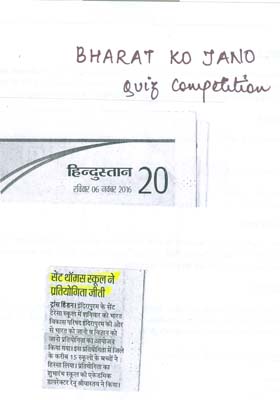 BHARAT KO JANO
Quiz Competition
हिन्दुस्तान 20
रविवार 06 नवंबर 2016
सेंट थॉमस स्कूल ने
प्रतियोगिता जीती
ट्रांस हिंडन। इंदिरापुरम के सेंट
टेरेसा स्कूल में शनिवार को भारत
विकास परिषद इंदिरापुरम की ओर
से भारत को जानो व विज्ञान को
जानो प्रतियोगिता का आयोजन
किया गया। इस प्रतियोगिता में जिले
के करीब 15 स्कूलों के बच्चों ने
हिस्सा लिया। प्रतियोगिता का
शुभारंभ स्कूल की एकेडमिक
डायरेक्टर रेनू श्रीवास्तव ने किया।